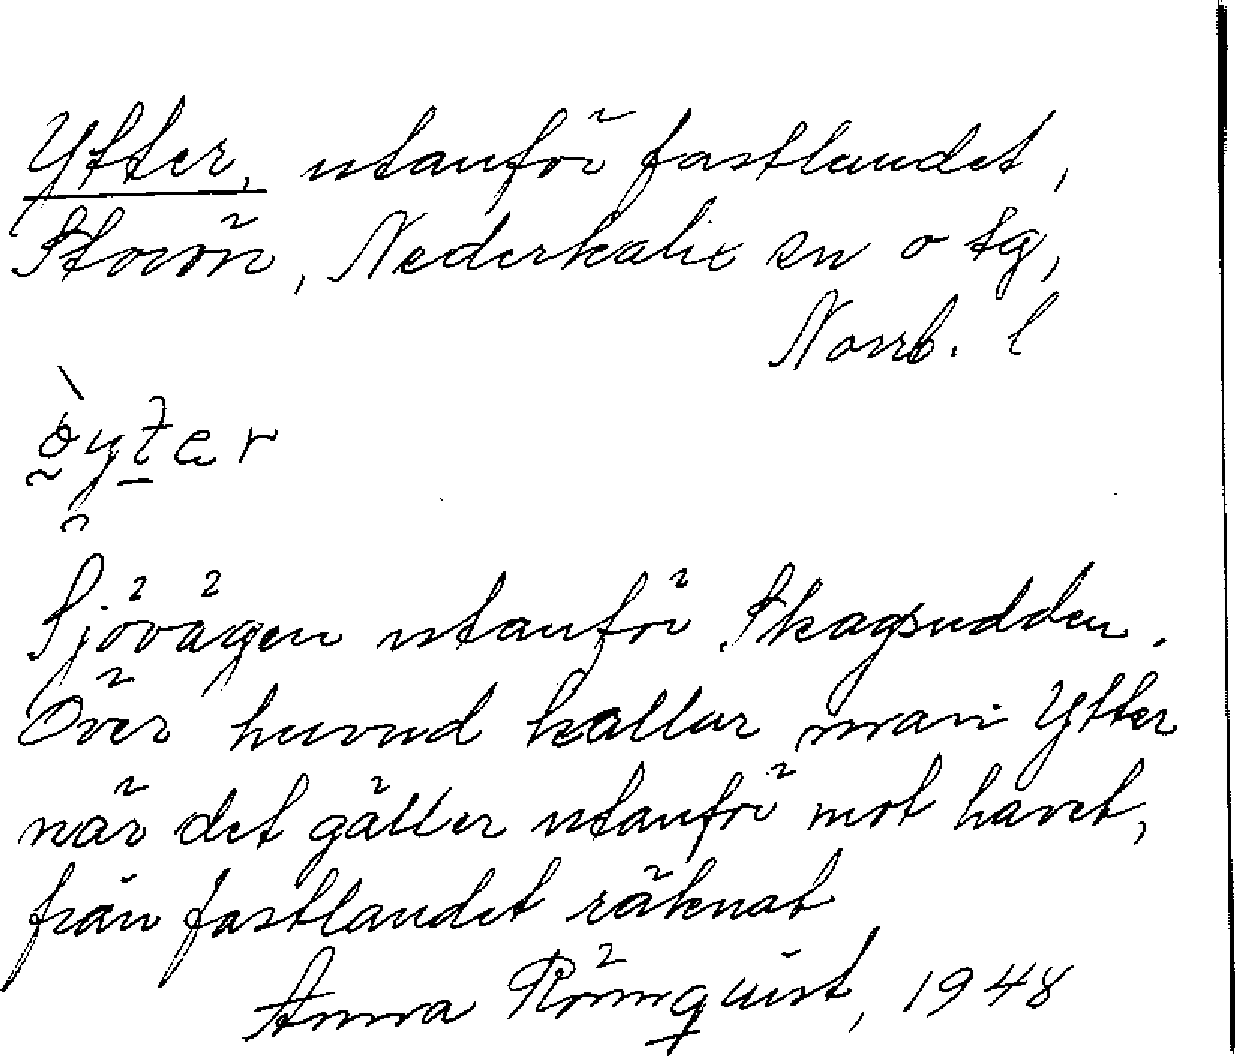 Ytter, utanför fastlandet,
Storön, Nederkalix sn o tg,
Norrb. l
Sjövägen utanför Skagsudden.
Över huvud kallar man Ytter
när det gäller utanför mot havet,
från fastlandet räknat
Anna Römquist, 1948